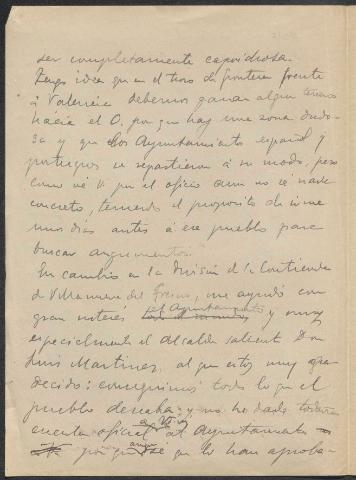 ser completamente
Tengo idea que en el trozo de frontera frente
á Valencia debemos ganar algun terreno
hacia el O. porque hay una zona dudo-
sa y que los Ayuntamientos español y
portugues se repartieron á su modo, pero
como vé V. por el oficio aun no sé nada
concreto, teniendo el proposito de irme
unos dias antes á ese pueblo para
buscar argumentos.
En cambio en la division de la Contienda
de Villanueva del Fresno, me ayudó con
gran interes el Ayuntamiento y muy
especialmente el Alcalde saliente Don
Luis Martinez, al que estoy muy agra-
decido: conseguimos todo lo que el
pueblo deseaba y no he dado todavia
cuenta oficial al Ayuntamiento
porque aunque se que lo han aproba-